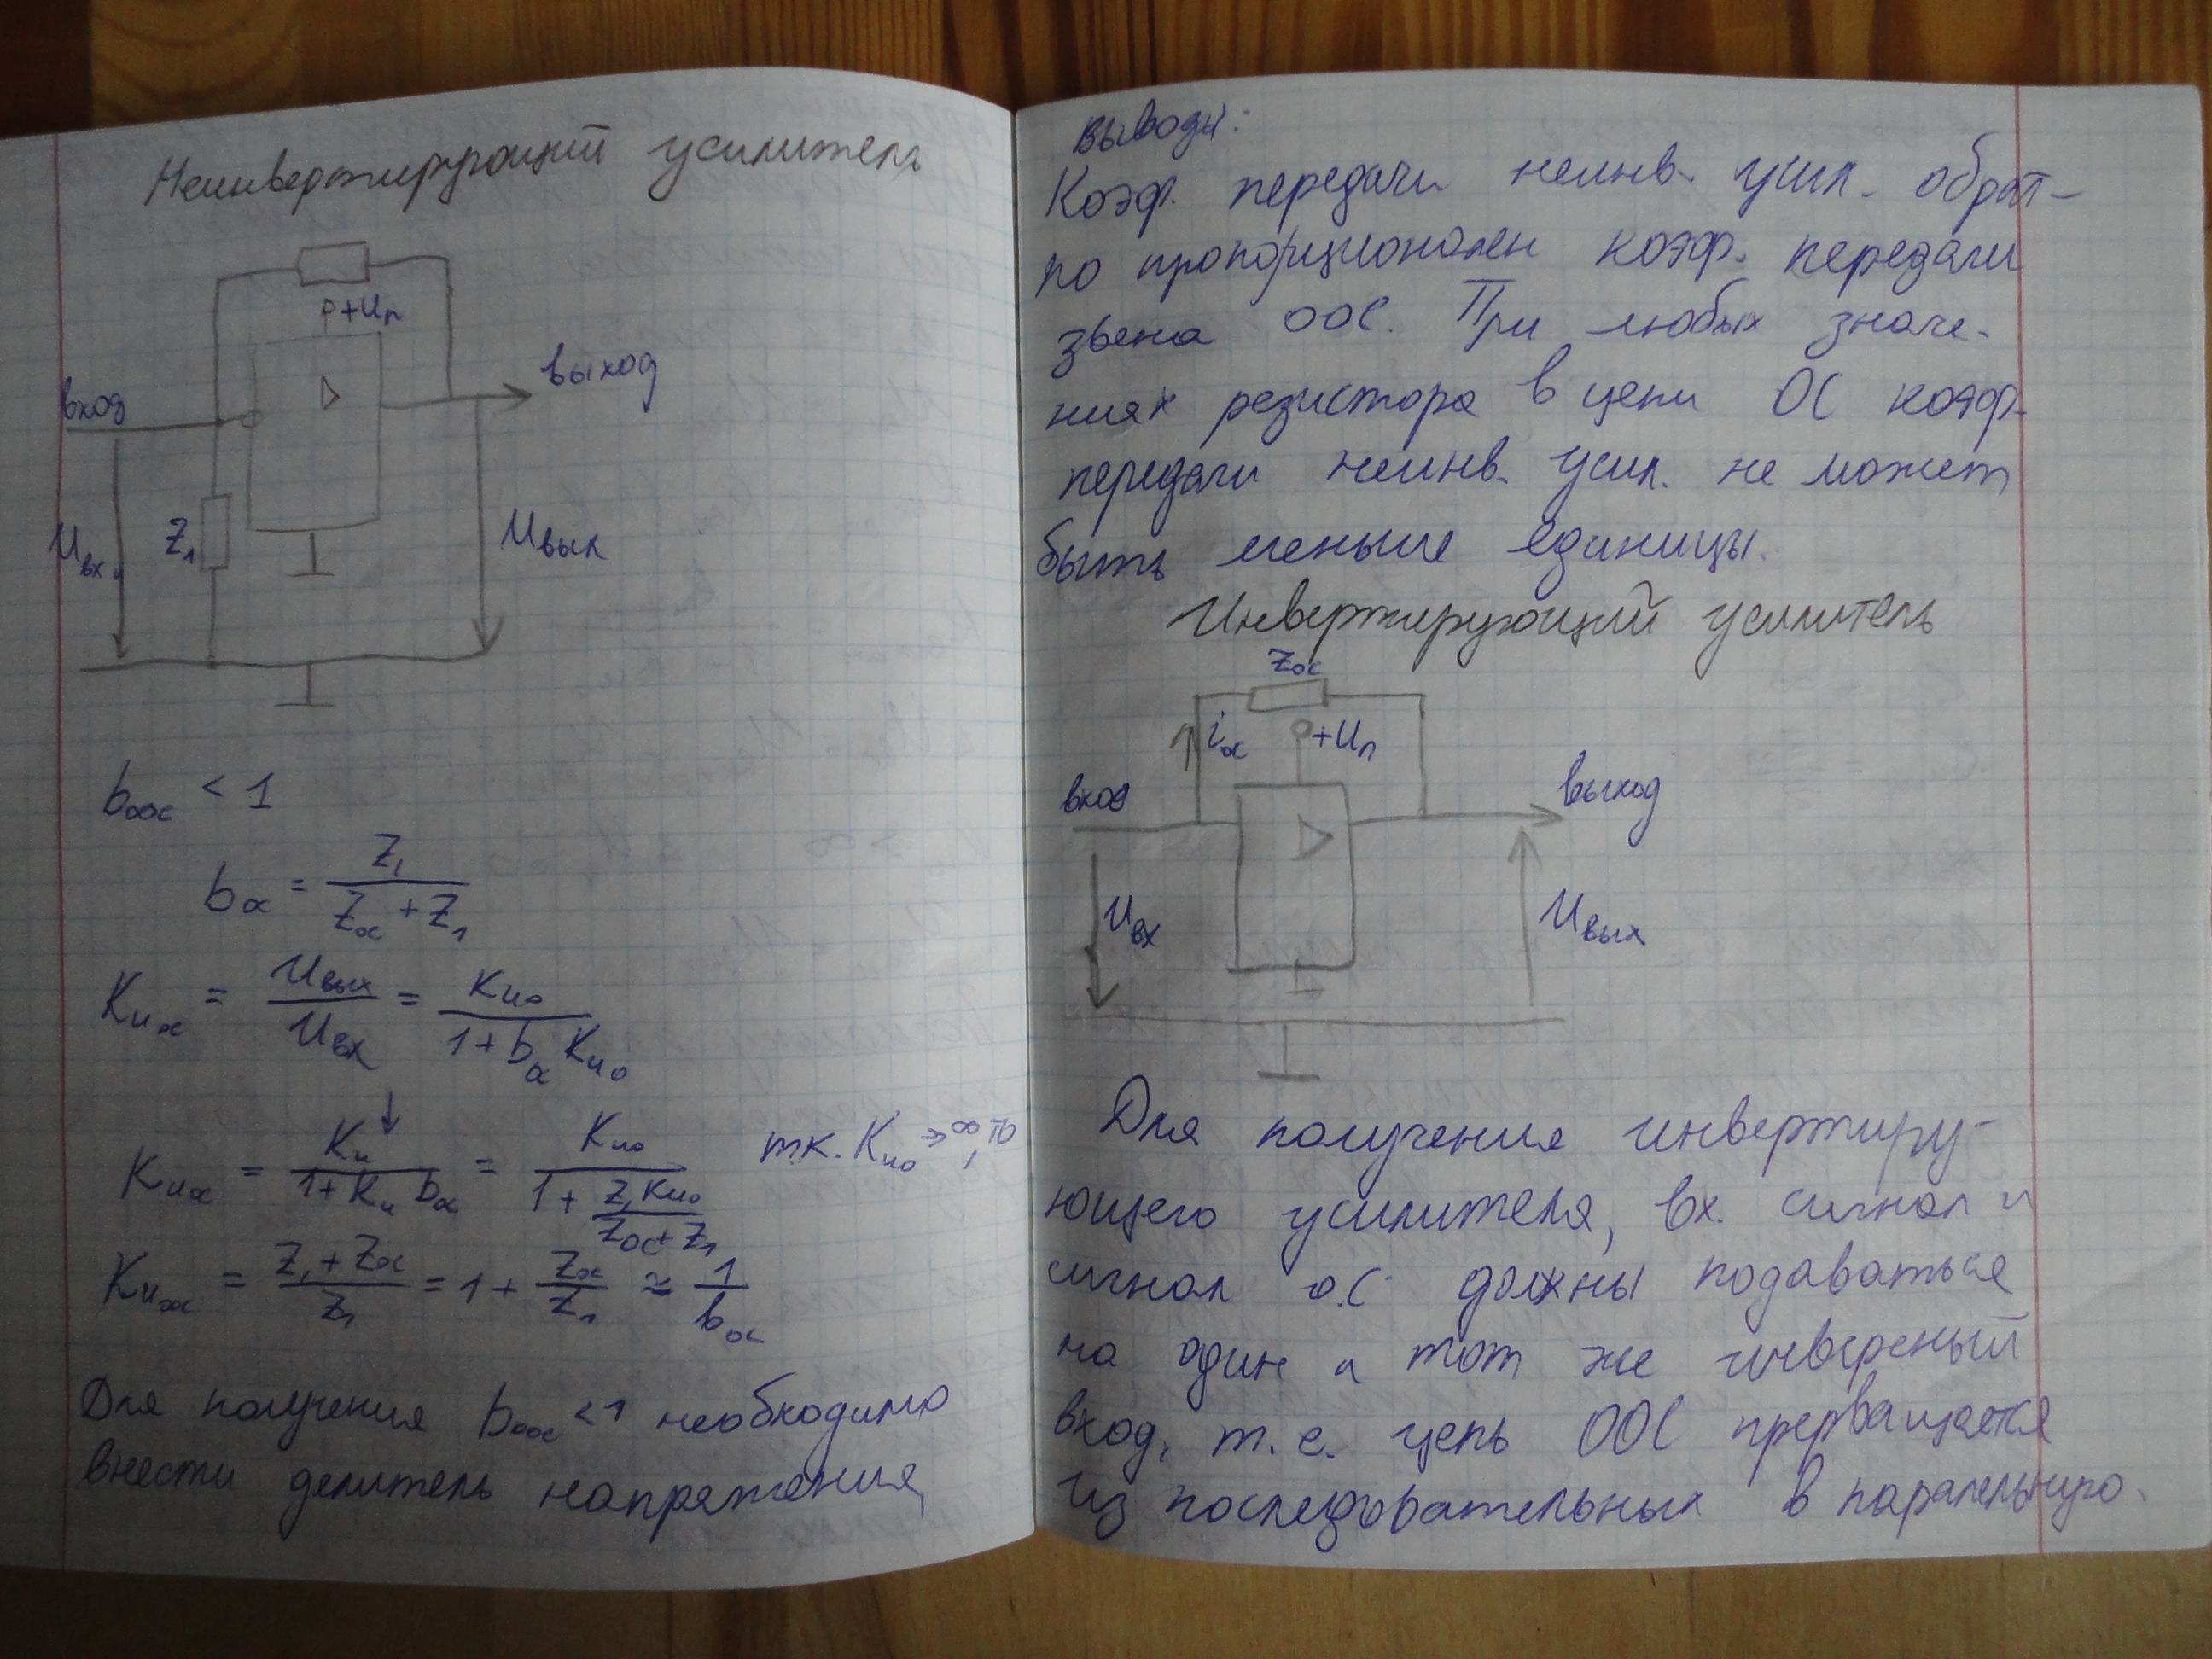 Неинвертирующий усилитель
+Uп
выход
вход
Uвх
Z₁
Uвых
bоос < 1
bос = Z₁ / (Zос + Z₁)
Kuос = Uвых / Uвх = Kuо / (1 + bос Kuо)
↓
Kuос = Ku / (1 + Ku bос) = Kuо / (1 + Z₁ Kuо / (Zос + Z₁)) т.к. Kuо → ∞, то
Kuос = (Z₁ + Zос) / Z₁ = 1 + Zос / Z₁ ≈ 1 / bос
Для получения bоос < 1 необходимо
внести делитель напряжения,
Выводы:
Коэф. передачи неинв. усил. обрат-
но пропорционален коэф. передачи
звена ООС. При любых значе-
ниях резистора в цепи ОС коэф.
передачи неинв. усил. не может
быть меньше единицы.
Инвертирующий усилитель
Zос
iос +Uп
вход
выход
Uвх
Uвых
Для получения инвертиру-
ющего усилителя, вх. сигнал и
сигнал о.С должны подаваться
на один и тот же инверсный
вход, т.е. цепь ООС прерващается
из последовательных в паралельную.